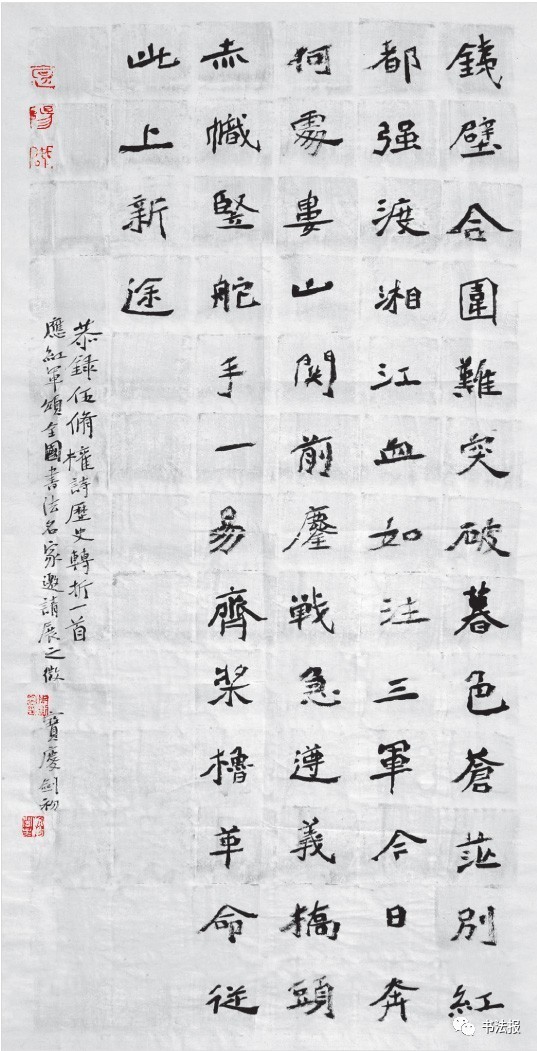 鐵壁合圍難突破暮色蒼茫別紅
都强渡湘江血如注三軍今日奔
何處婁山關前鏖戰急遵義橋頭
赤幟豎舵手一易齊桨櫓革命從
此上新途
恭録伍脩權詩歷史轉折一首
應紅軍頌全國書法名家邀請展之徵 寶慶劍初
书法报